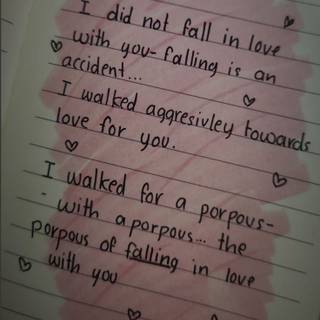 I did not fall in love
with you- falling is an
accident...
I walked aggresivley towards
love for you.
I walked for a porpous-
- with a porpous... the
porpous of falling in love
with you